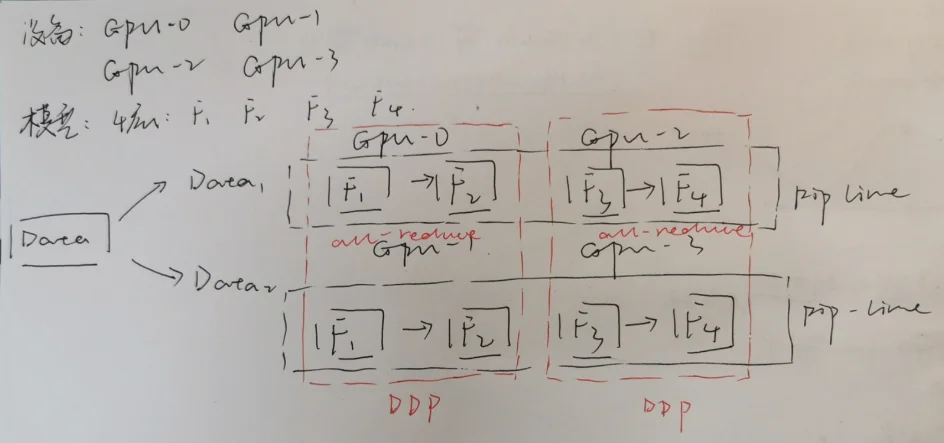 设备: Gpu-0 Gpu-1
Gpu-2 Gpu-3
模型: 4层: F1 F2 F3 F4.
Gpu-0 Gpu-2
Data1 F1 → F2 F3 → F4 pip line
Data
all-reduce all-reduce
Gpu-1 Gpu-3
Data2
F1 → F2 F3 → F4 pip-line
DDP DDP